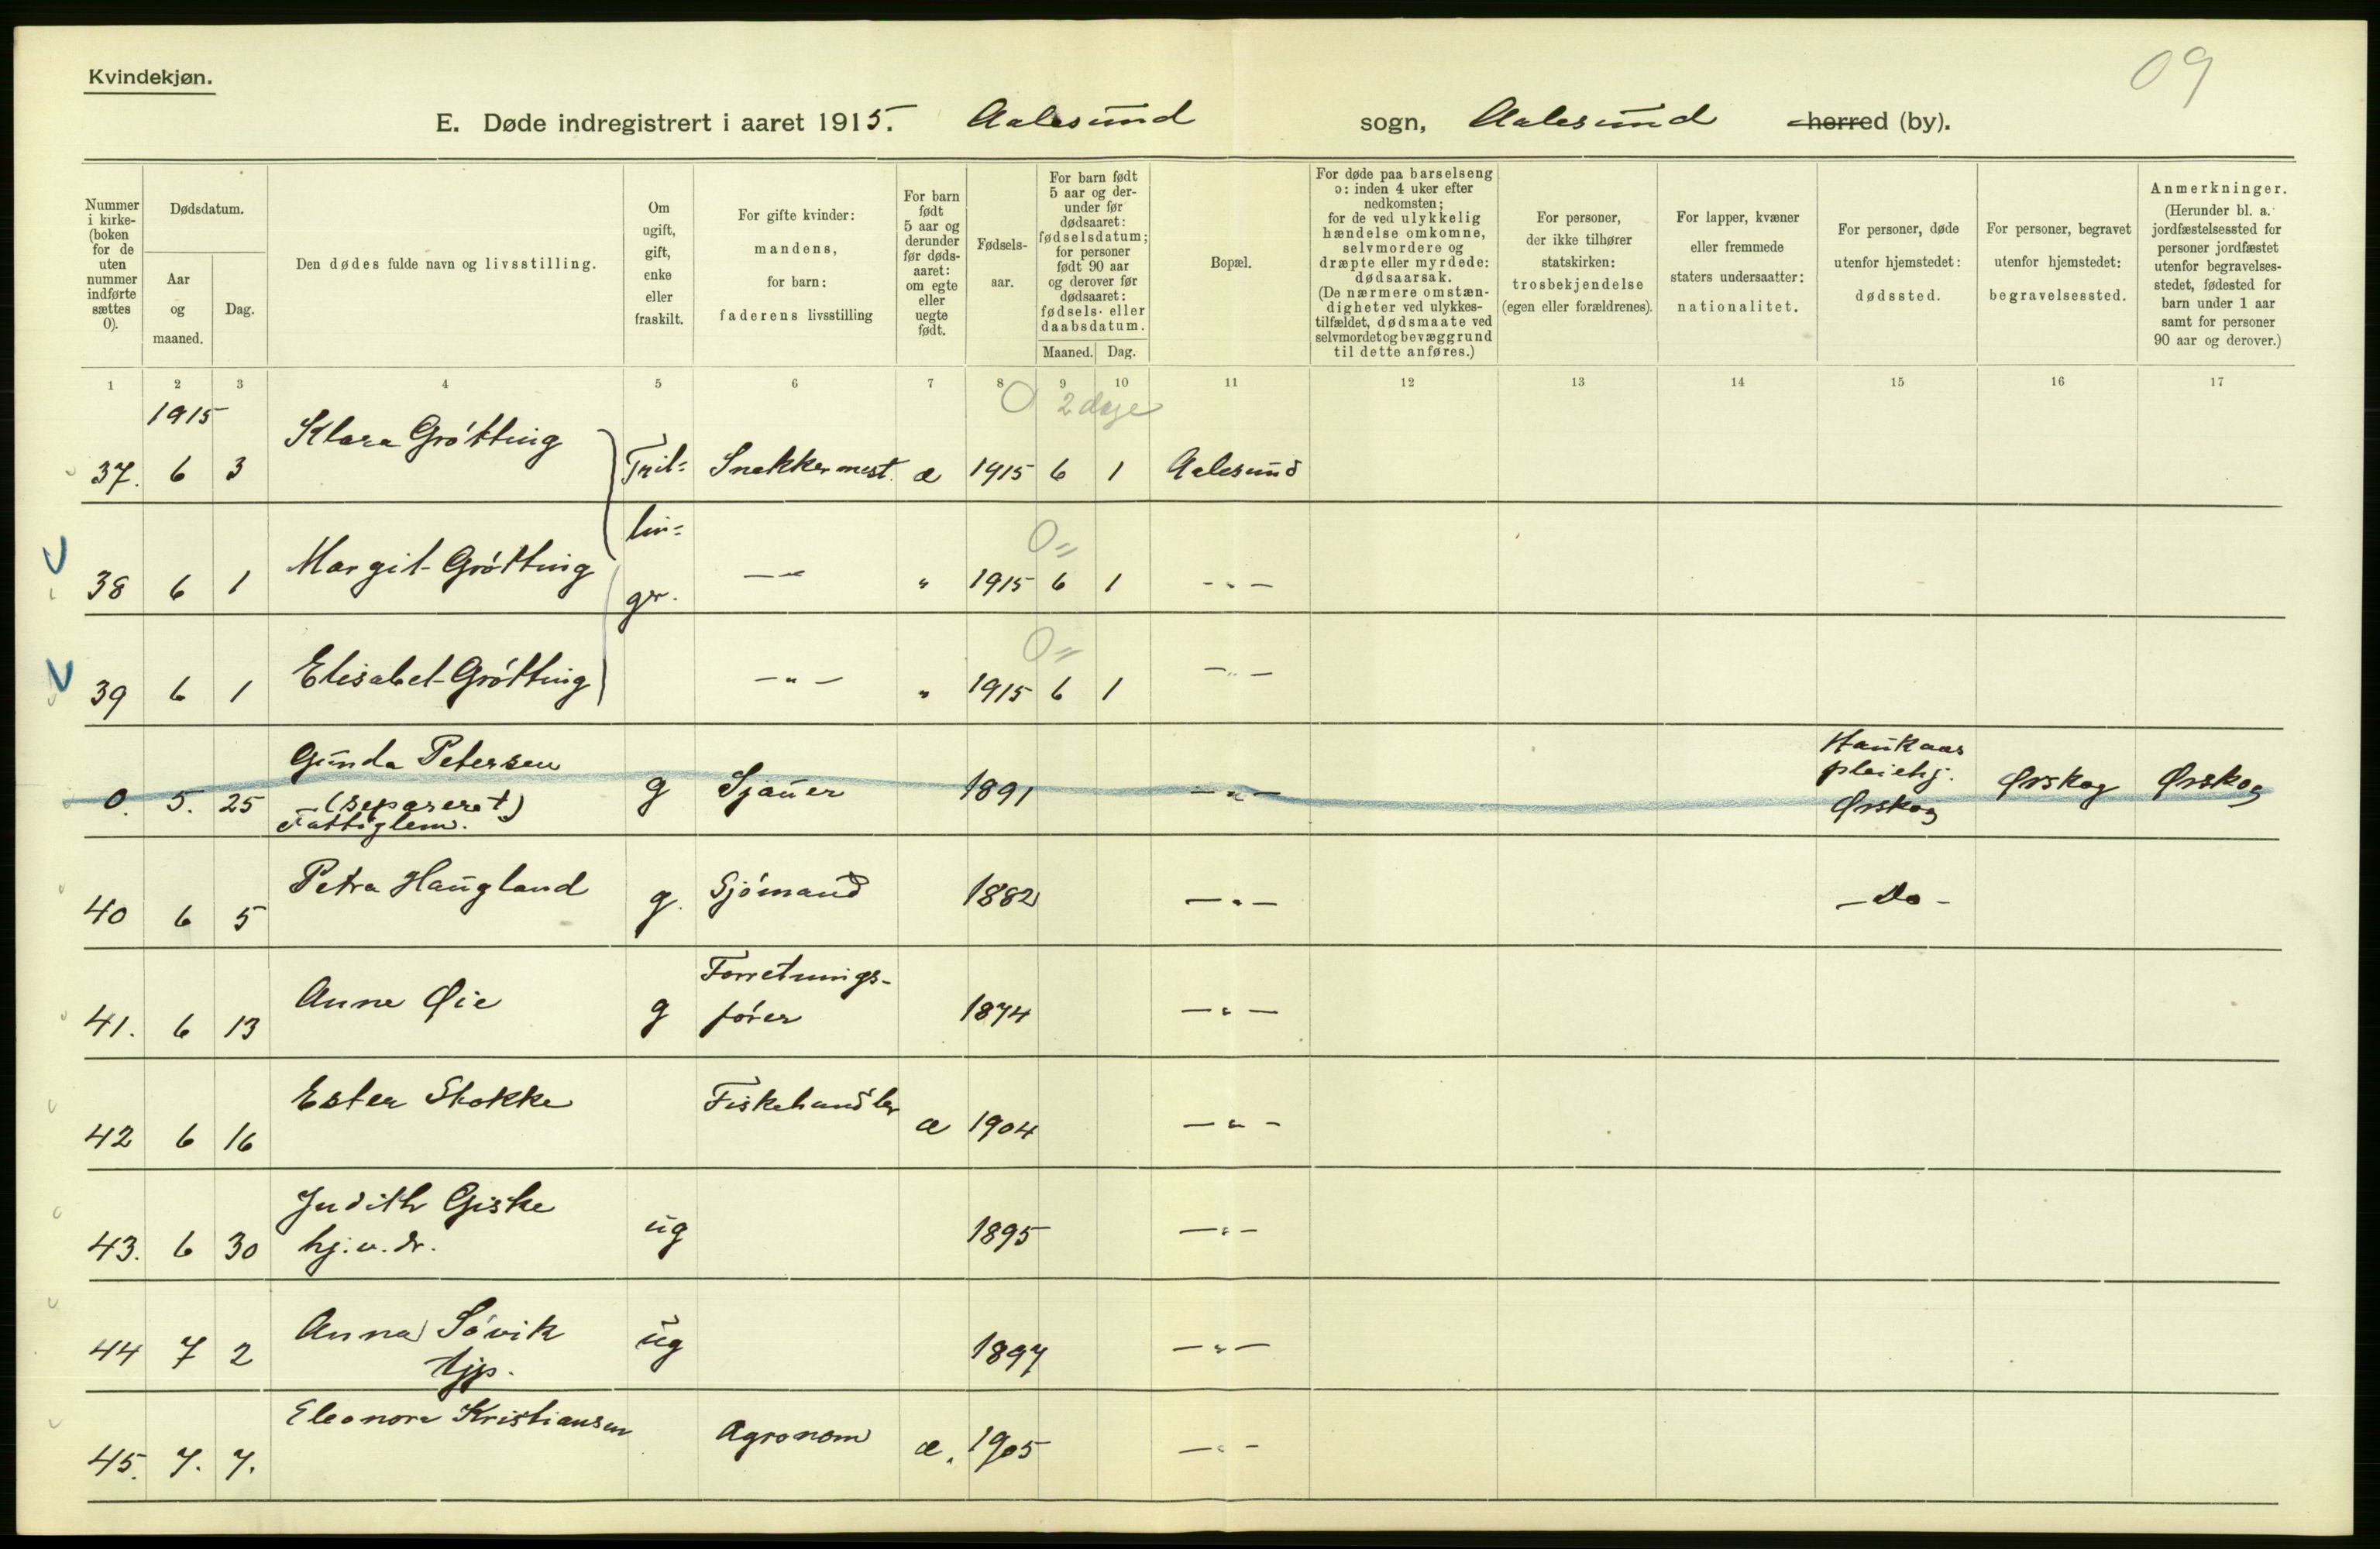 09
Kvindekjøn.
E. Døde indregistrert i aaret 1915. Aalesund sogn, Aalesund herred (by).
Nummer i kirke- (boken for de uten nummer indførte sættes 0).
Dødsdatum.
Aar og maaned.
Dag.
Den dødes fulde navn og livsstilling.
Om ugift, gift, enke eller fraskilt.
For gifte kvinder: mandens, for barn: faderens livsstilling
For barn født 5 aar og derunder før døds- aaret: om egte eller uegte født.
Fødsels- aar.
For barn født 5 aar og der- under før dødsaaret: fødselsdatum; for personer født 90 aar og derover før dødsaaret: fødsels- eller daabsdatum.
Maaned. Dag.
Bopæl.
For døde paa barselseng ɔ: inden 4 uker efter nedkomsten; for de ved ulykkelig hændelse omkomne, selvmordere og dræpte eller myrdede: dødsaarsak. (De nærmere omstæn- digheter ved ulykkes- tilfældet, dødsmaate ved selvmordet og bevæggrund til dette anføres.)
For personer, der ikke tilhører statskirken: trosbekjendelse (egen eller forældrenes).
For lapper, kvæner eller fremmede staters undersaatter: nationalitet.
For personer, døde utenfor hjemstedet: dødssted.
For personer, begravet utenfor hjemstedet: begravelsessted.
Anmerkninger. (Herunder bl. a. jordfæstelsessted for personer jordfæstet utenfor begravelses- stedet, fødested for barn under 1 aar samt for personer 90 aar og derover.)
1 2 3 4 5 6 7 8 9 10 11 12 13 14 15 16 17
1915 0 2 dage
37. 6 3 Klara Gróttting Tril= Snekkermest. æ 1915 6 1 Aalesund
lin=
0 =
38 6 1 Margit Grótting ger. — — " 1915 6 1 - " -
0 =
39 6 1 Elisabet Grótting — " — " 1915 6 1 — " —
0. 5. 25 Gunda Petersen (separeret) Fattiglem. g Sjauer 1891 — " — Haukaas pleiehj. Ørskog Ørskog Ørskog
40 6 5 Petra Haugland g. Sjómand 1882 — " — — Do —
41. 6 13 Anne Øie g Forretnings- fórer 1874 — " —
42 6 16 Ester Stokke Fiskehandler æ 1904 — " —
43. 6 30 Judith Giske hj. v. dr. ug 1895 — " —
44 7 2 Anna Sóvik tjp. ug 1897 — " —
45. 7. 7. Eleonora Kristiansen Agronom æ. 1905 — " —